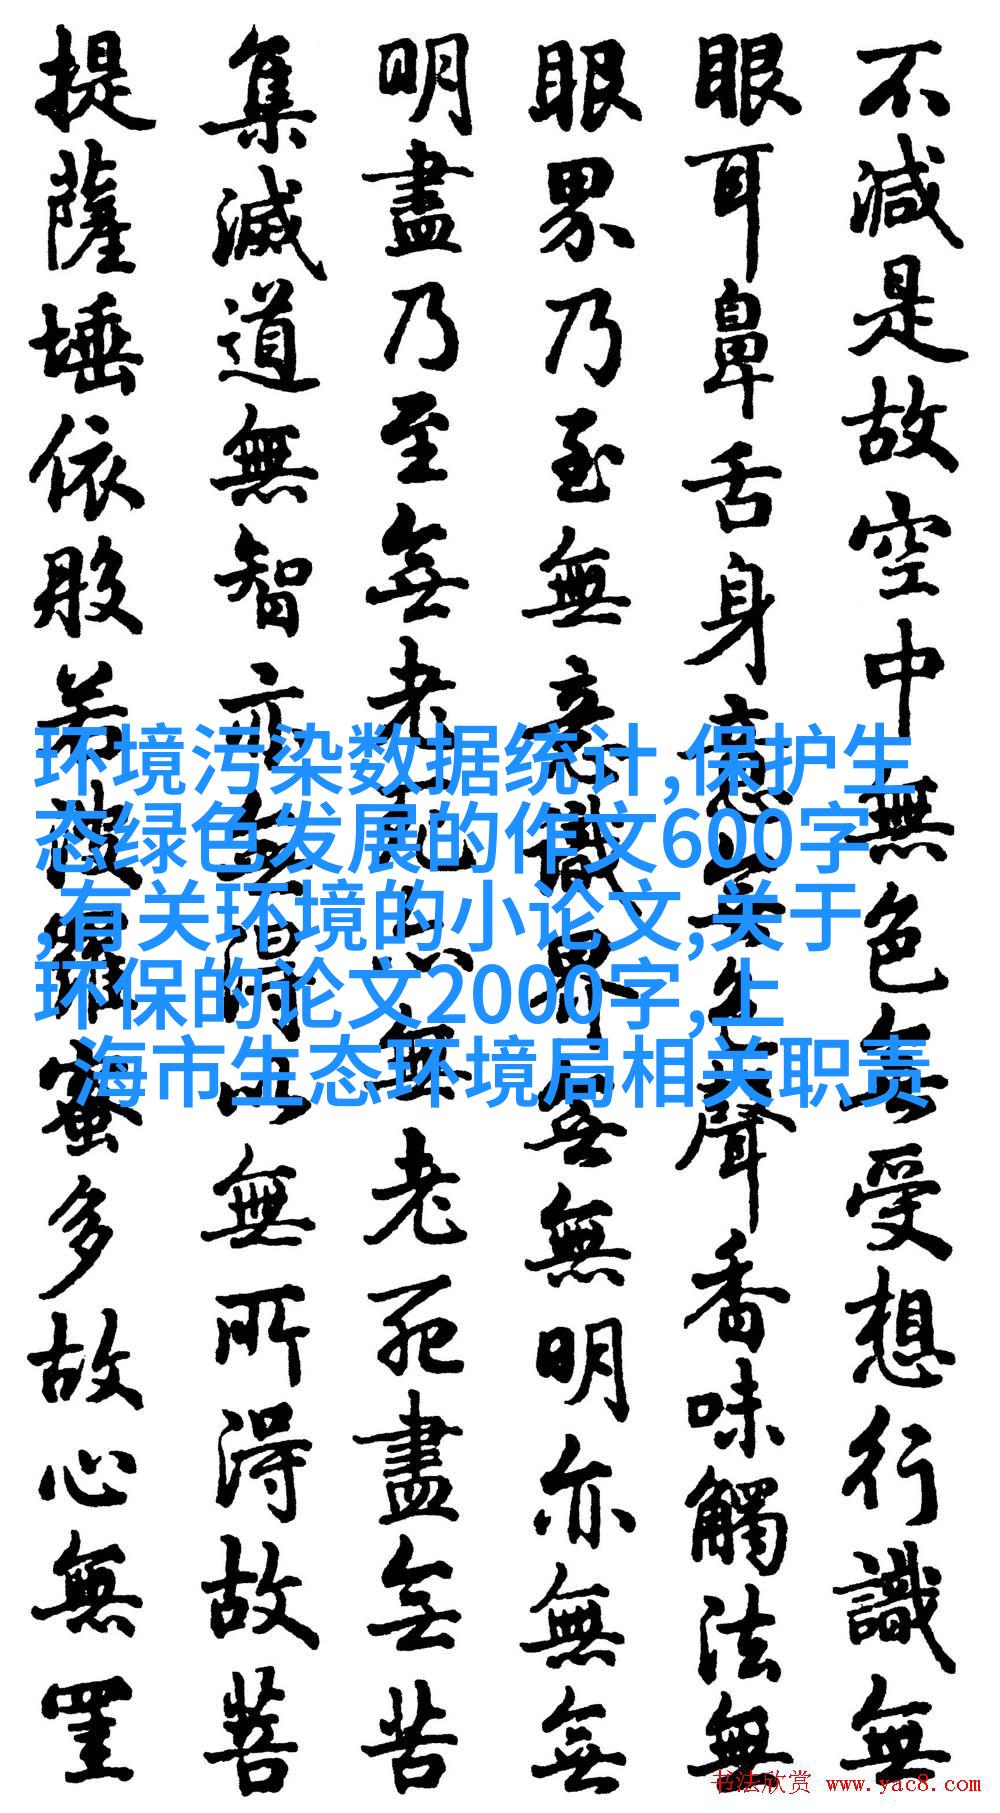 不減是故空中無色無受想行識無
眼耳鼻舌身意無色聲香味觸法無
眼界乃至無意識界無無明亦無無
明盡乃至無老死亦無老死盡無苦
集滅道無智亦無得以無所得故菩
提薩埵依般若波羅蜜多故心無罣
环境污染数据统计,保护生
态绿色发展的作文600字
,有关环境的小论文,关于
环保的论文2000字,上
海市生态环境局相关职责
书法欣赏 www.yac8.com